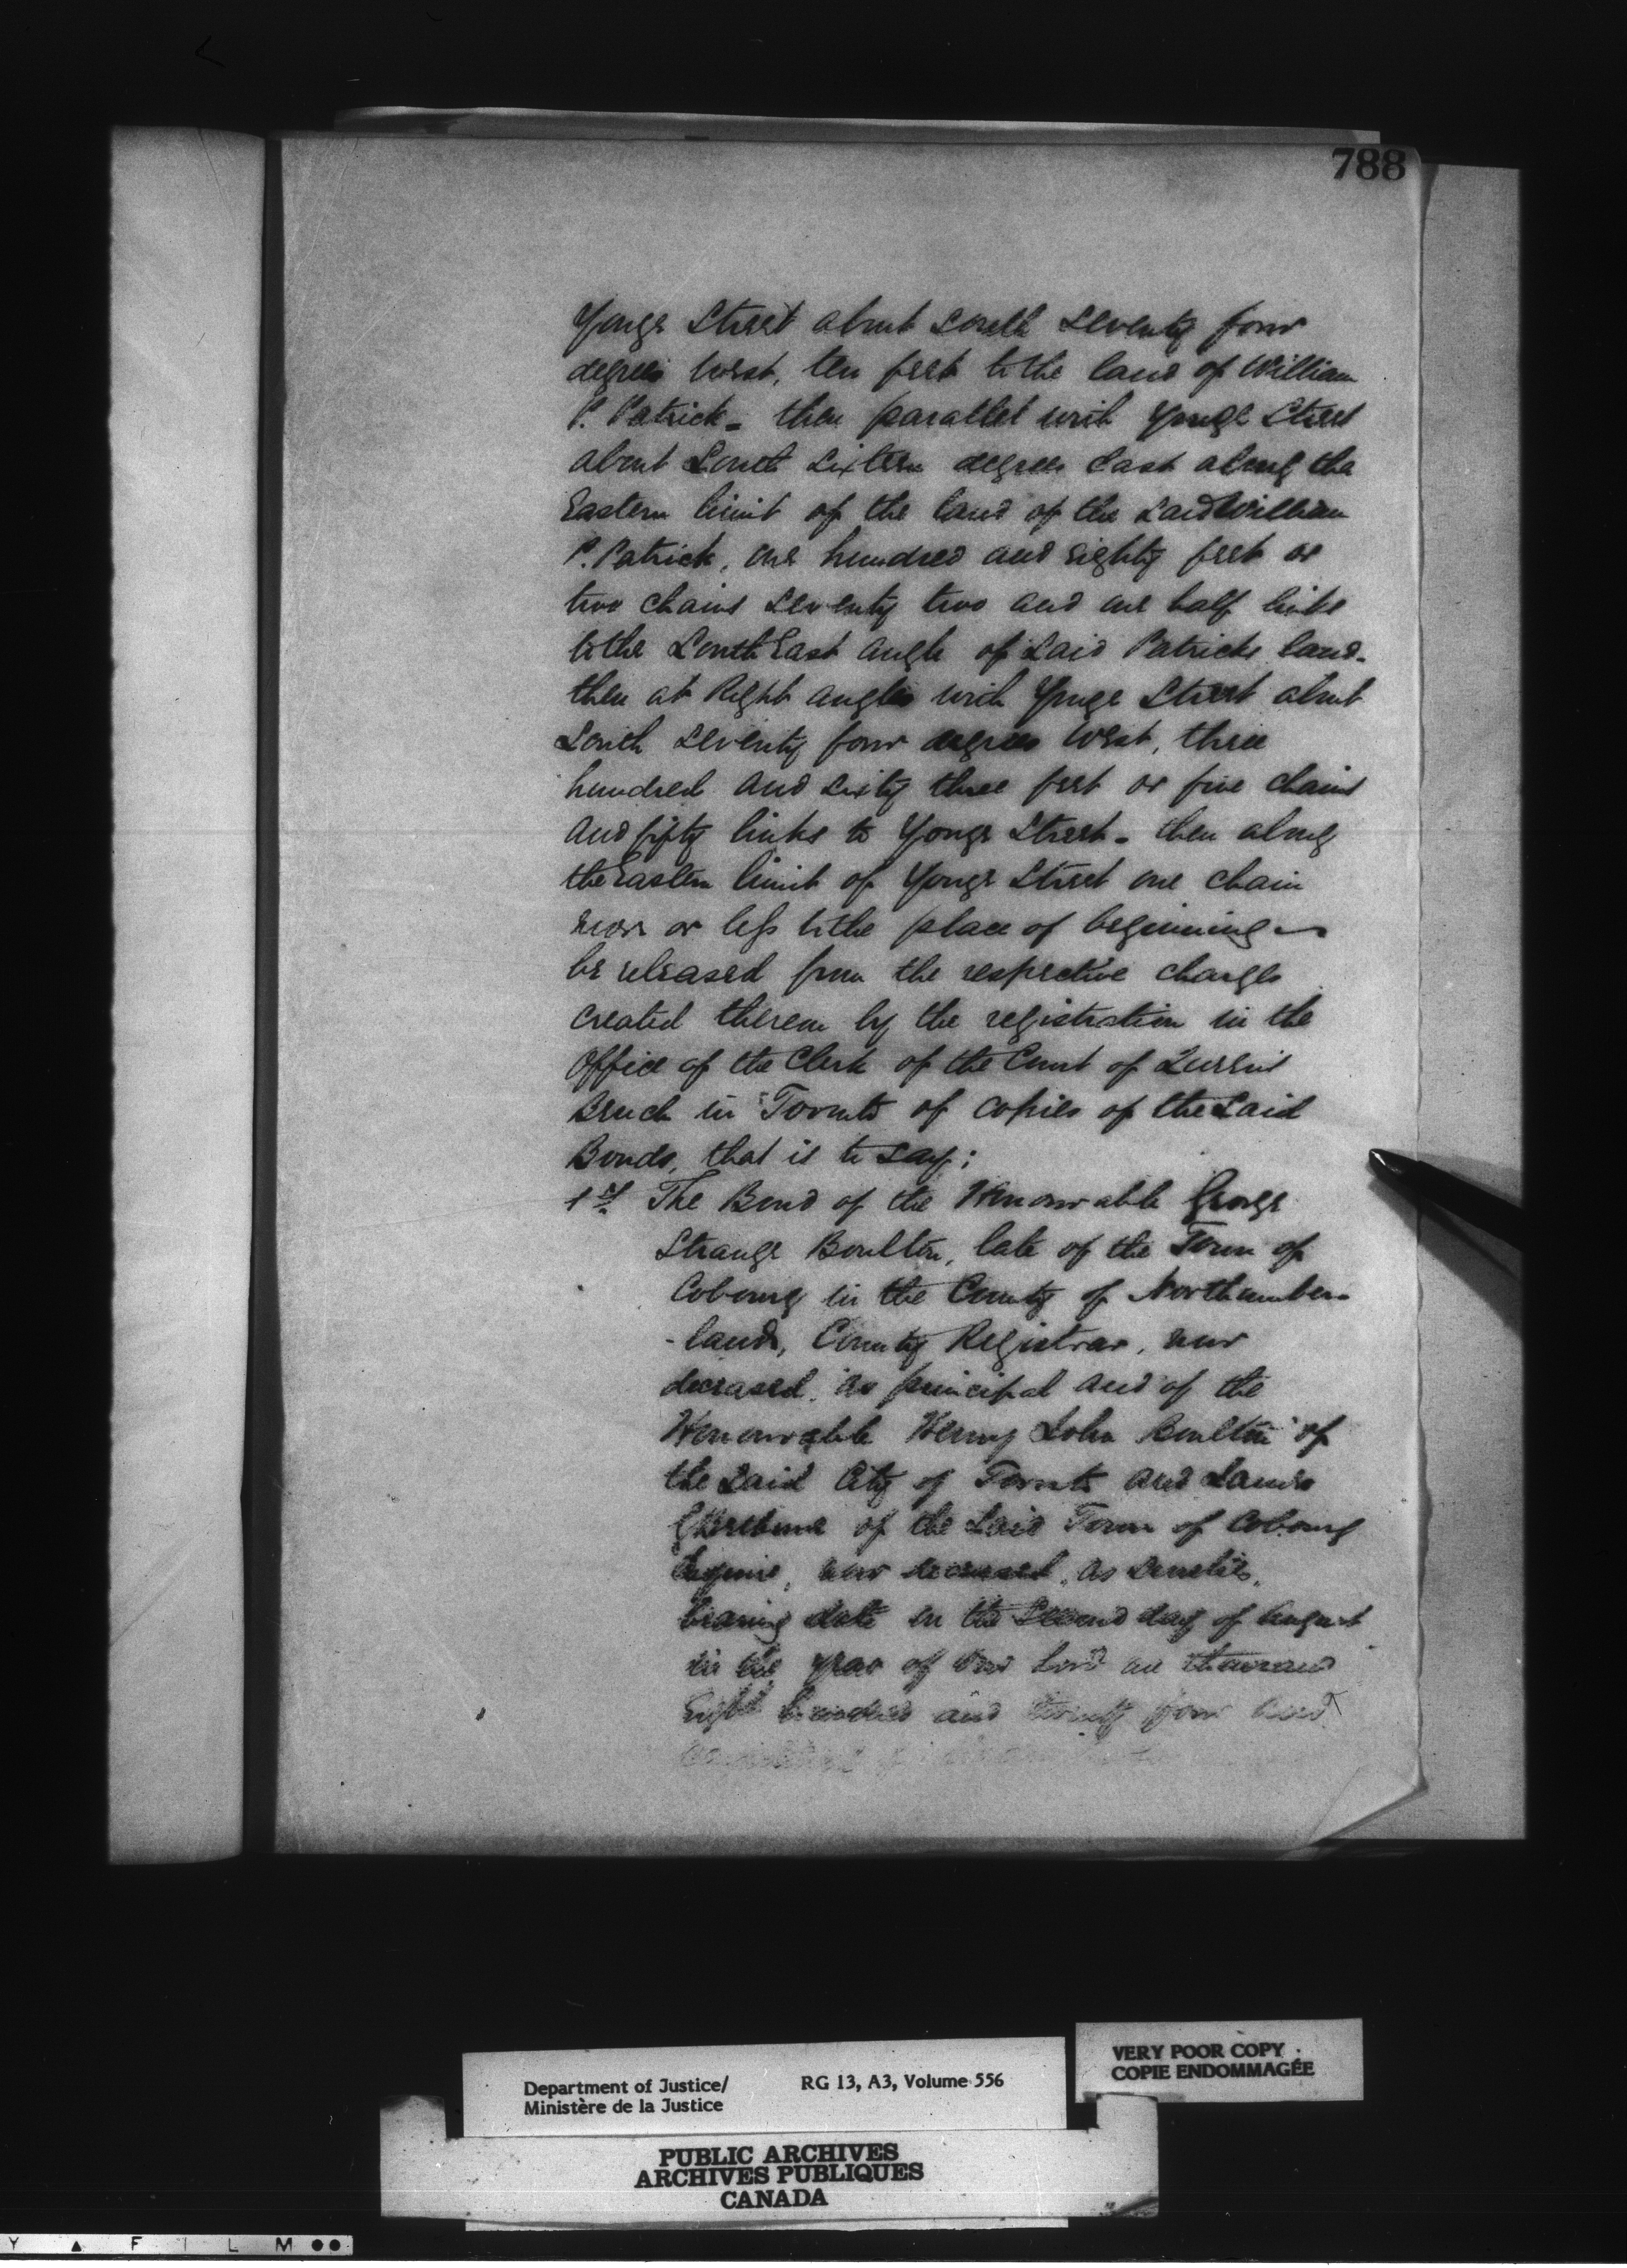 788
Yonge Street about South Seventy four
degrees West, ten feet to the land of William
P. Patrick - then parallel with Yonge Street
about South Sixteen degrees East along the
Eastern limit of the land of the said William
P. Patrick, one hundred and eighty feet or
two chains Seventy two and one half links
to the South East angle of Said Patricks land -
then at Right angles with Yonge Street about
South Seventy four degrees West, three
hundred and sixty three feet or five chains
and fifty links to Yonge Street - then along
the Eastern limit of Yonge Street one chain
more or less to the place of beginning -
be released from the respective charges
created thereon by the registration in the
Office of the Clerk of the Court of Queen's
Bench in Toronto of copies of the Said
Bonds, that is to Say;
1st The Bond of the Honourable George
Strange Boulton, late of the Town of
Cobourg in the County of Northumber-
-land, County Registrar, now
deceased, as principal and of the
Honourable Henry John Boulton of
the Said City of Toronto and James
of the Said Town of Cobourg
Esquire, now deceased, as Sureties,
bearing date on the Second day of August
in the year of Our Lord one thousand
Eight hundred and twenty four and
Department of Justice/
Ministère de la Justice
RG 13, A3, Volume 556
VERY POOR COPY
COPIE ENDOMMAGÉE
PUBLIC ARCHIVES
ARCHIVES PUBLIQUES
CANADA
Y ▲ F I L M ●●